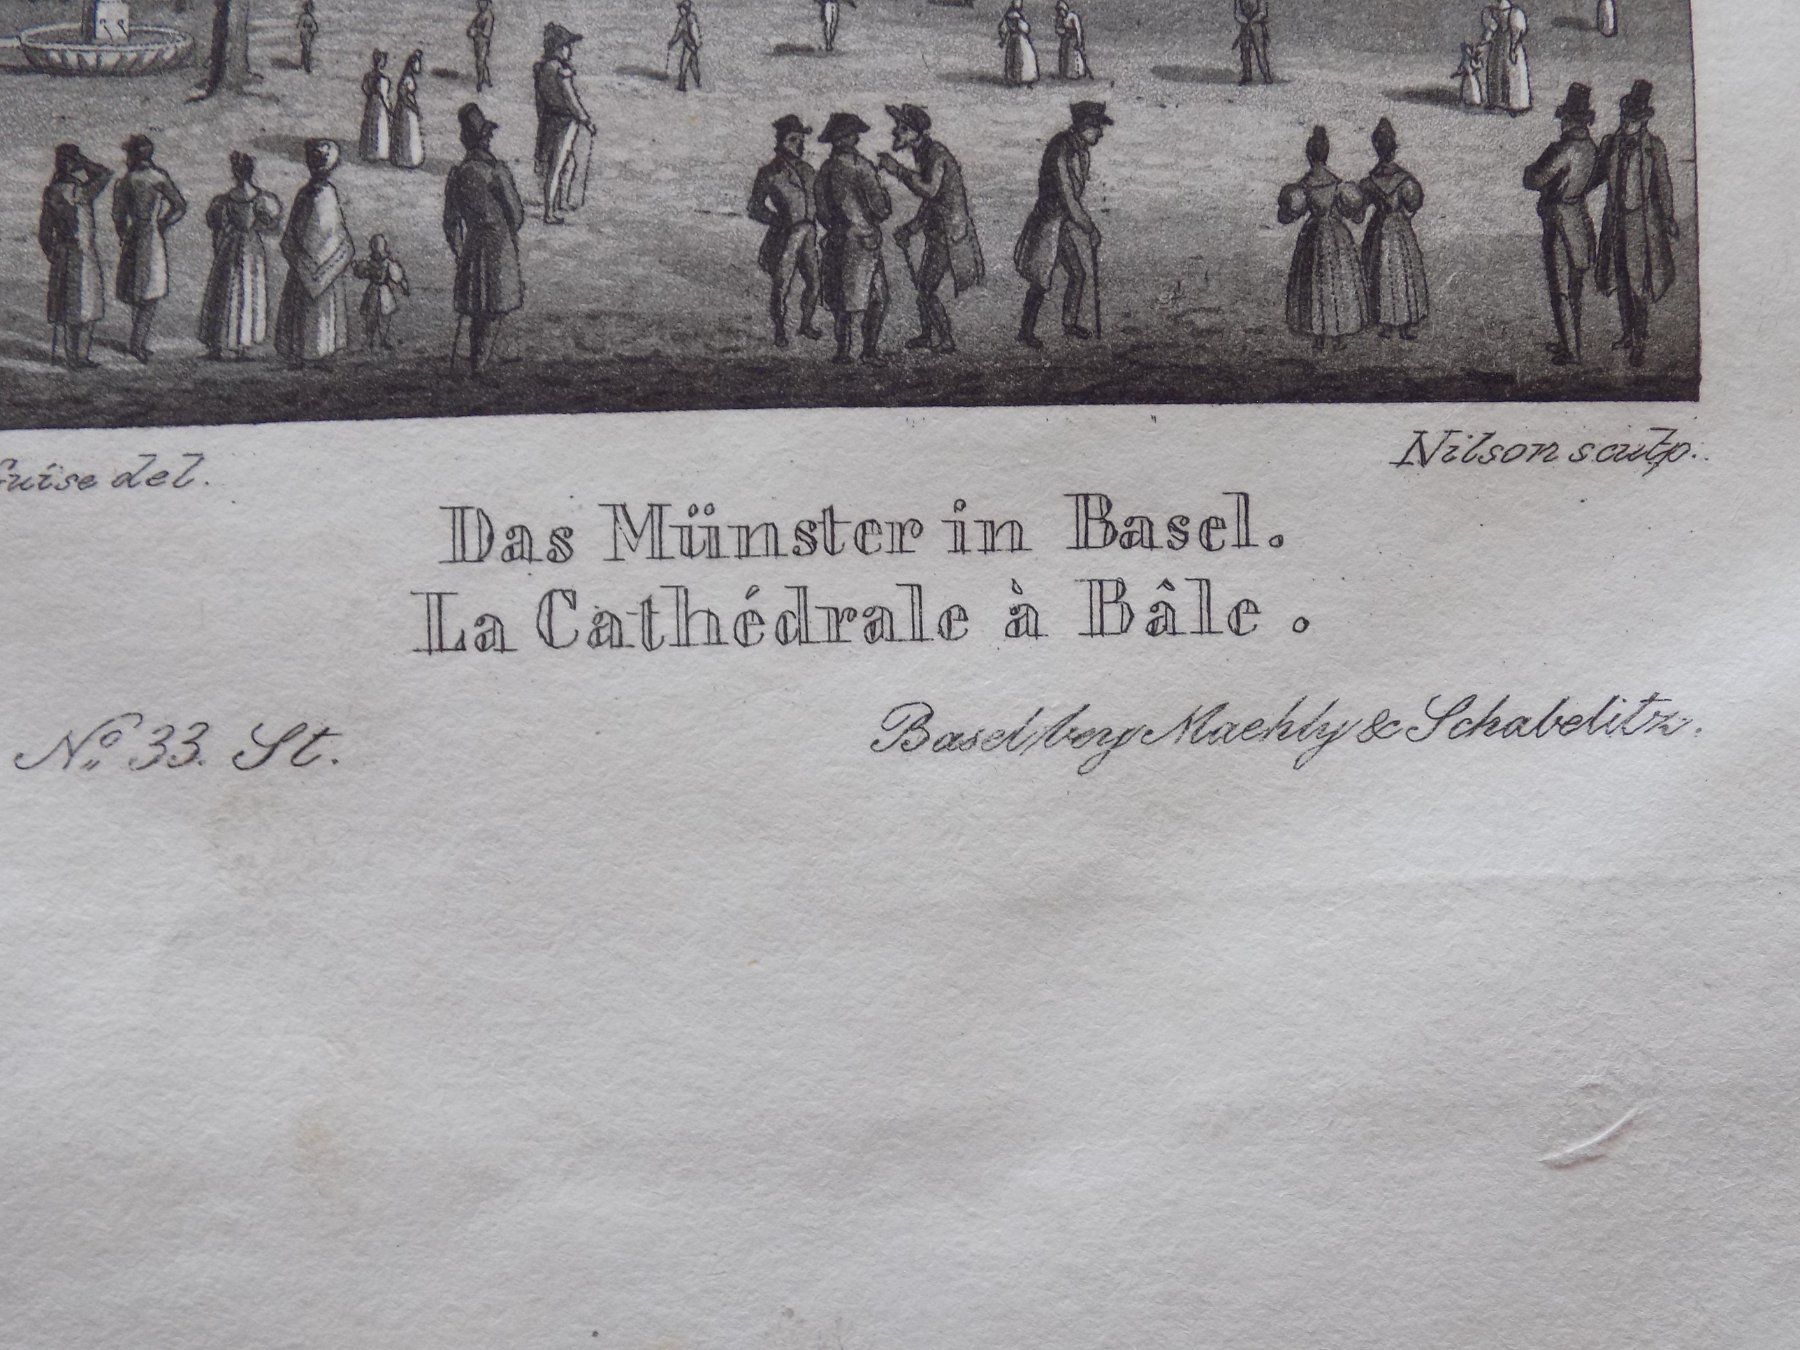 Guise del.
Nilson sculp.
Das Münster in Basel.
La Cathédrale à Bâle.
No. 33. St.
Basel bey Maehly & Schabelitz.